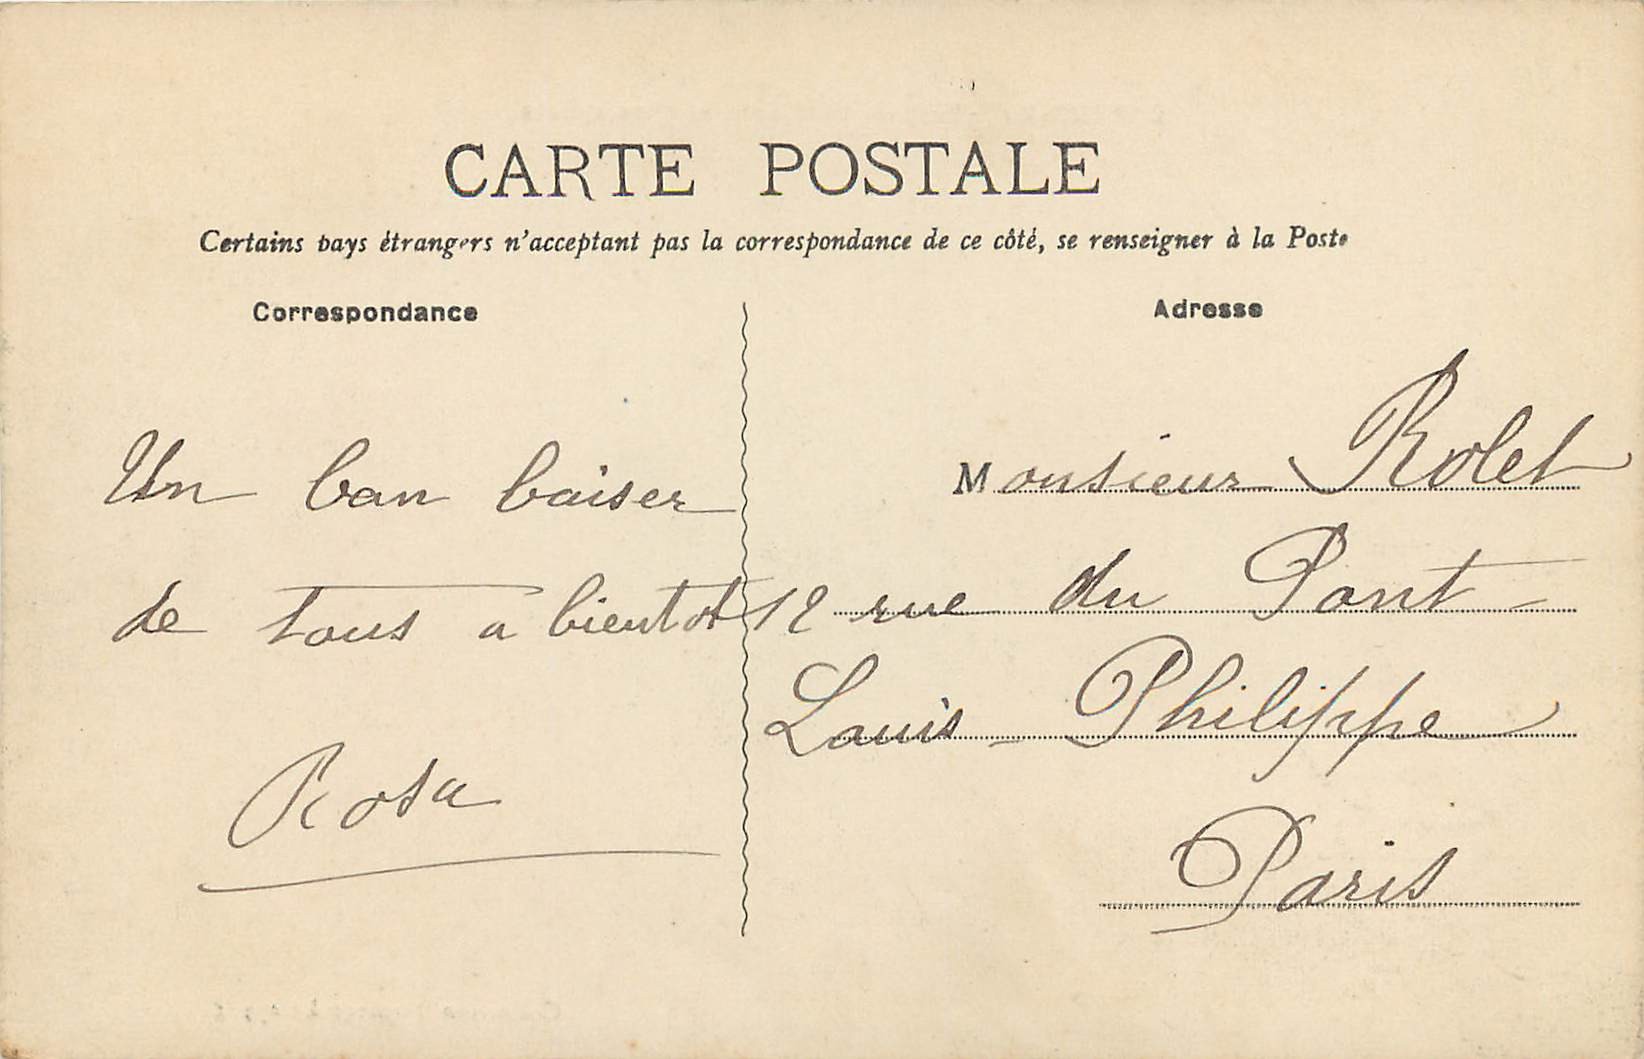 CARTE POSTALE
Certains pays étrangers n'acceptant pas la correspondance de ce côté, se renseigner à la Poste
Correspondance
Un bon baiser
de tous a bientot
Rosa
Adresse
Monsieur Rolet
12 rue du Pont-
Louis-Philippe
Paris